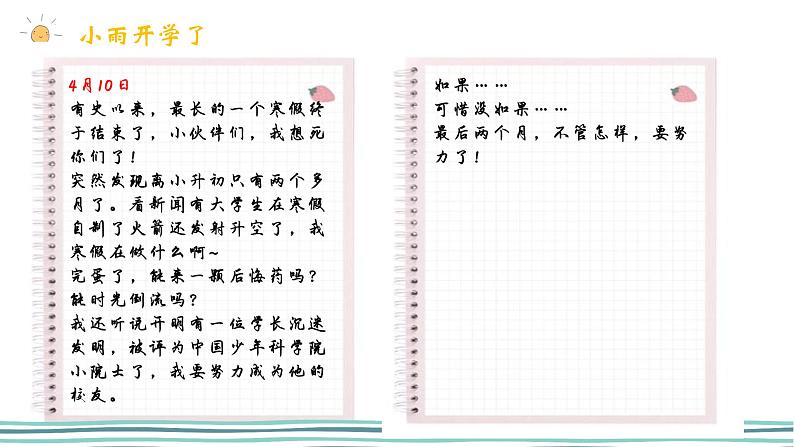 小雨开学了
4月10日
有史以来，最长的一个寒假终
于结束了，小伙伴们，我想死
你们了！
突然发现离小升初只有两个多
月了。看新闻有大学生在寒假
自制了火箭还发射升空了，我
寒假在做什么啊~
完蛋了，能来一颗后悔药吗？
能时光倒流吗？
我还听说开明有一位学长沉迷
发明，被评为中国少年科学院
小院士了，我要努力成为他的
校友。
如果……
可惜没如果……
最后两个月，不管怎样，要努
力了！